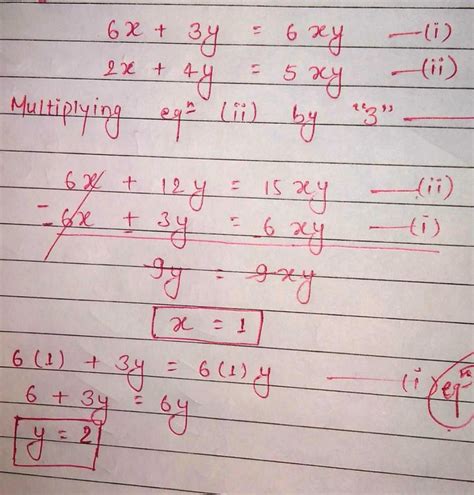 6x + 3y = 6xy —(i)
2x + 4y = 5xy —(ii)
Multiplying eqⁿ (ii) by "3" —
6x + 12y = 15xy —(ii)
- 6x + 3y = 6xy —(i)
9y = 9xy
x = 1
6(1) + 3y = 6(1)y —(i) eqⁿ
6 + 3y = 6y
y = 2